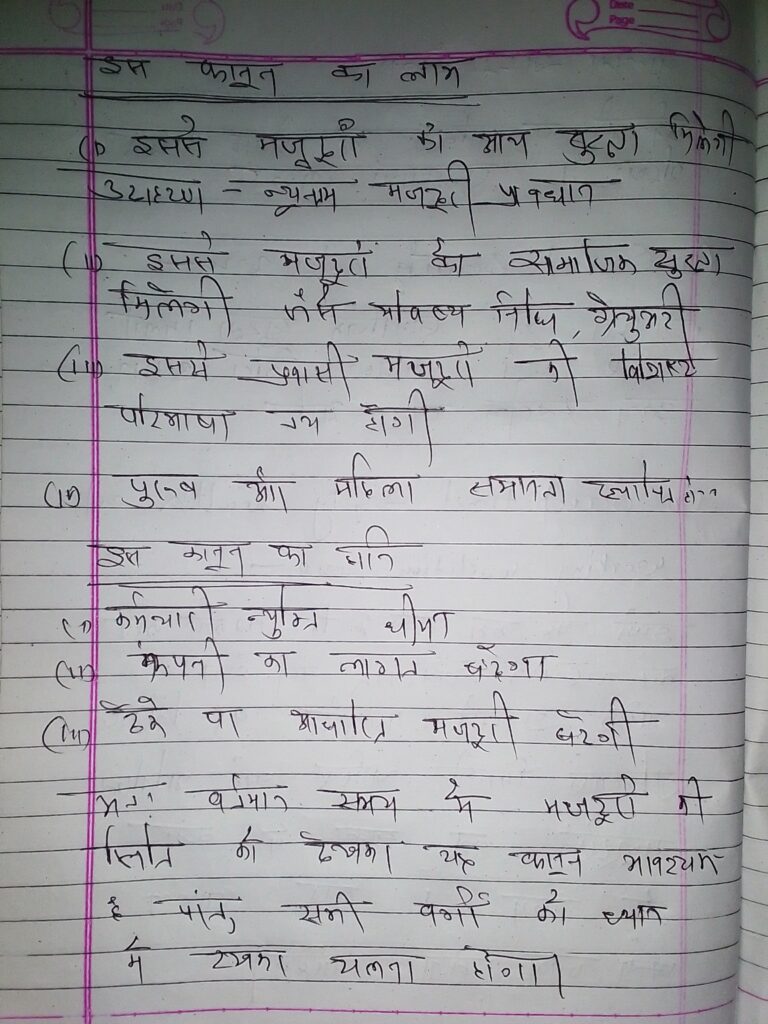 Date
Page
इस कानून का लाभ
(i) इससे मजदूरों को आय सुरक्षा मिलेगी
उदाहरण - न्यूनतम मजदूरी प्रवधान
(ii) इससे मजदूरों को समाजिक सुरक्षा
मिलेगी जैसे भविष्य निधि, ग्रेचुअटी
(iii) इससे प्रवासी मजदूरों की विशिष्ट
परिभाषा तय होगी
(iv) पुरुष और महिला समानता स्थापित
इस कानून का हानि
(i) कर्मचारी न्युक्ति धीमा
(ii) कंपनी का लागत बढेगा
(iii) ठेके पर आधारित मजदूरी बढेगी
अतः वर्तमान समय में मजदूरों की
स्थिति को देखकर यह कानून आवश्यक
है परंतु, सभी वर्गों को ध्यान
में रखकर चलना होगा।